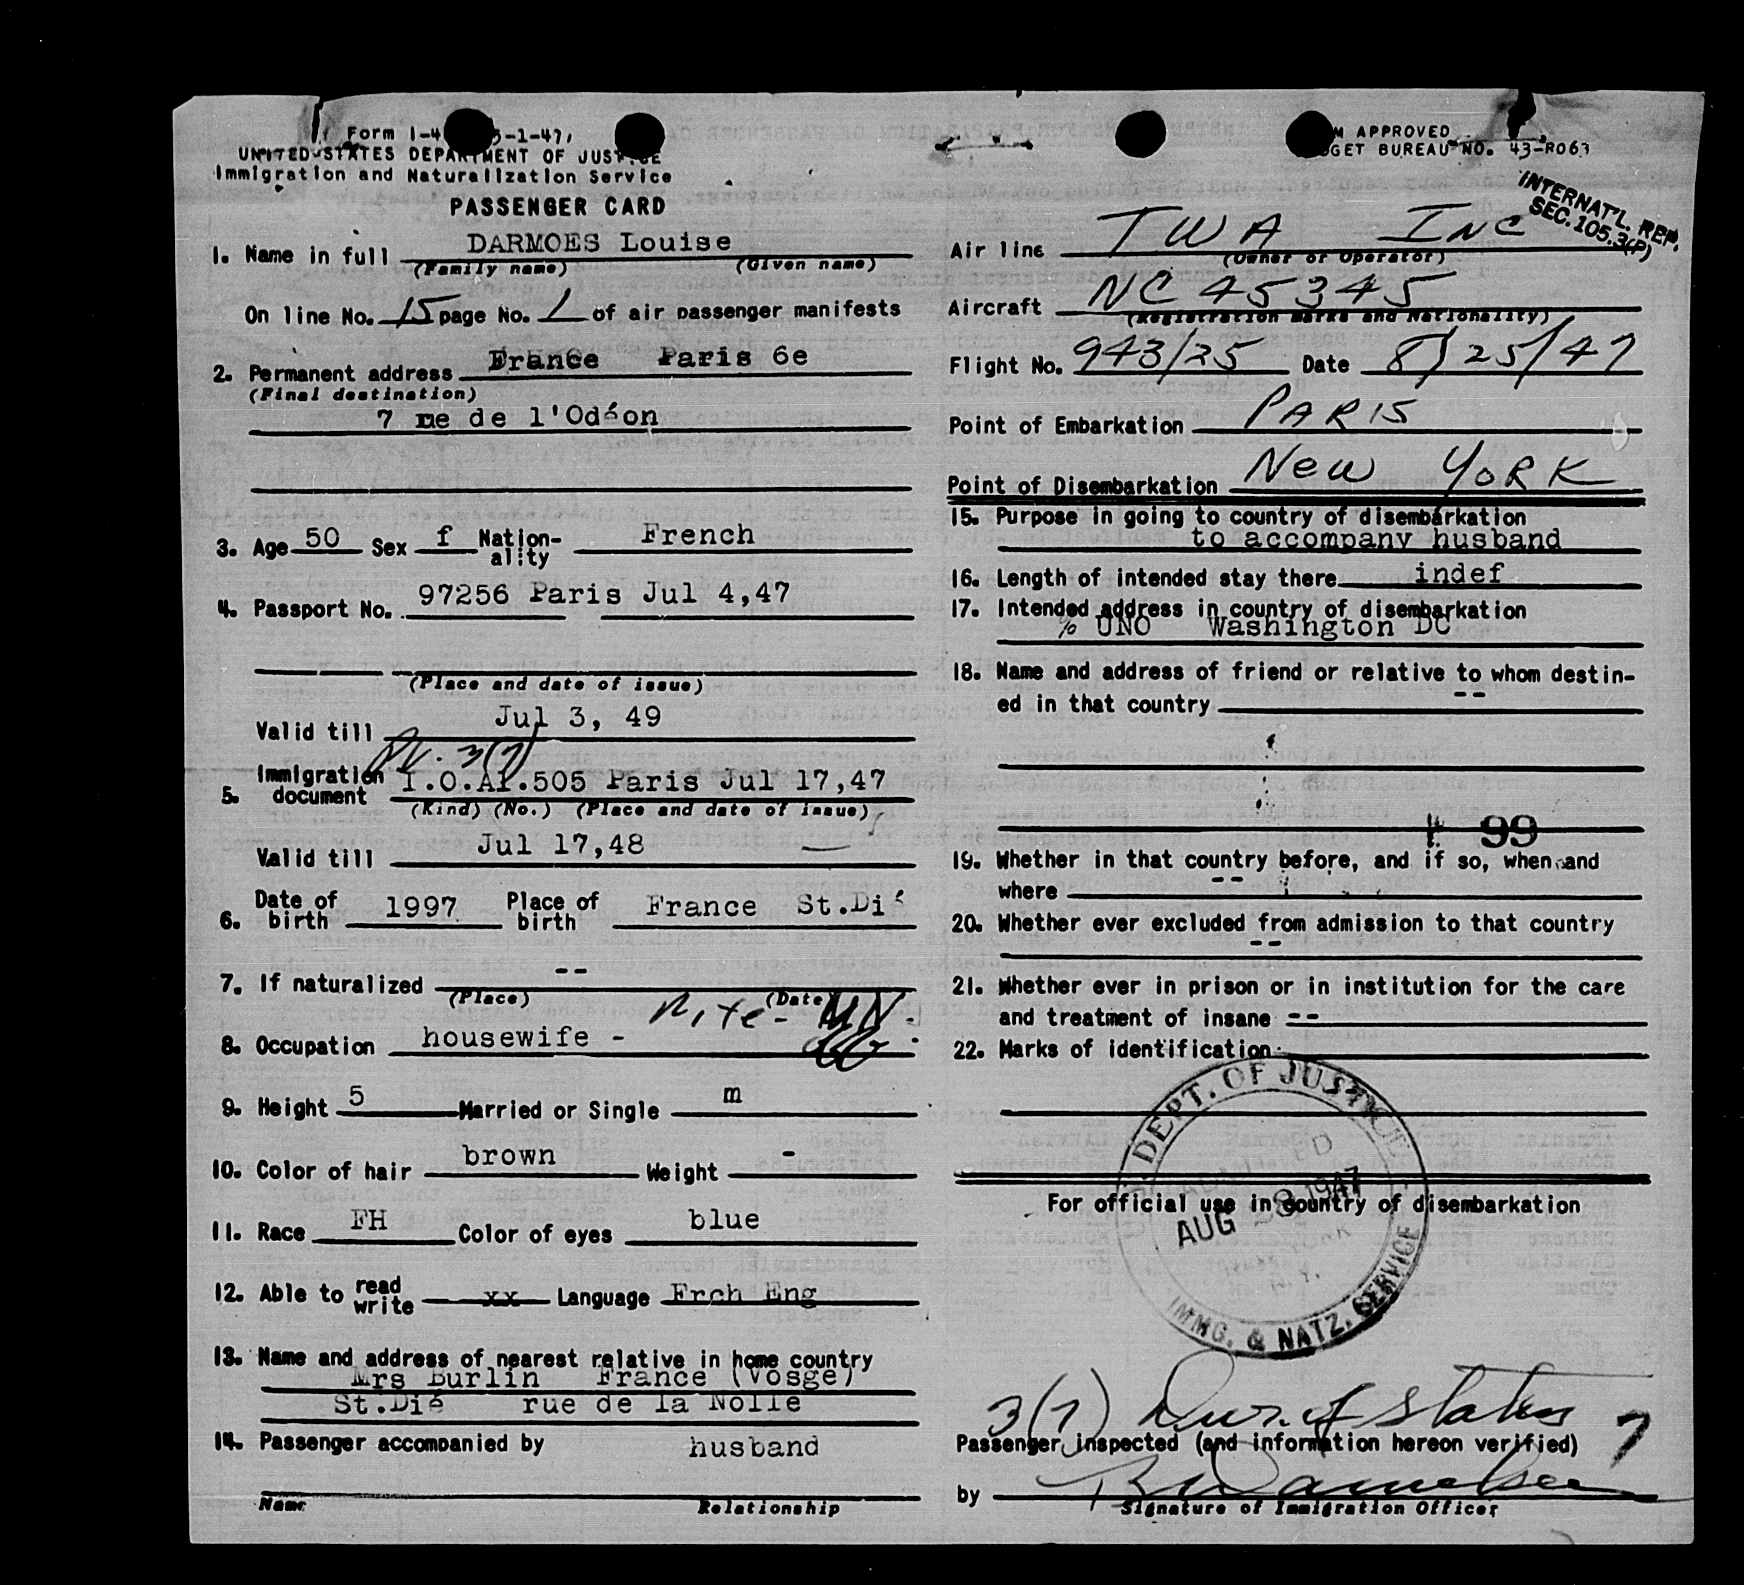 Form I-4 5-1-47,
UNITED STATES DEPARTMENT OF JUSTICE
Immigration and Naturalization Service
PASSENGER CARD
1. Name in full DARMOES Louise
(Family name) (Given name)
On line No. 15 page No. 1 of air passenger manifests
2. Permanent address France Paris 6e
(Final destination)
7 rue de l'Odéon
3. Age 50 Sex f Nation-ality French
4. Passport No. 97256 Paris Jul 4,47
(Place and date of issue)
Valid till Jul 3, 49
3(7)
5. Immigration document I.O.AF.505 Paris Jul 17,47
(Kind) (No.) (Place and date of issue)
Valid till Jul 17,48
6. Date of birth 1997 Place of birth France St.Dié
7. If naturalized --
(Place) (Date)
8. Occupation housewife -
9. Height 5 Married or Single m
10. Color of hair brown Weight -
11. Race FH Color of eyes blue
12. Able to read write xx Language Frch Eng
13. Name and address of nearest relative in home country
Mrs Burlin France (Vosge)
St.Dié rue de la Nolle
14. Passenger accompanied by husband
Name Relationship
M APPROVED
GET BUREAU NO. 43-R063
INTERNAT'L. REP.
SEC. 105.3(P)
Air line TWA INC
(Owner or Operator)
Aircraft NC 45345
(Registration marks and Nationality)
Flight No. 943/25 Date 8/25/47
Point of Embarkation PARIS
Point of Disembarkation New YORK
15. Purpose in going to country of disembarkation
to accompany husband
16. Length of intended stay there indef
17. Intended address in country of disembarkation
% UNO Washington DC
18. Name and address of friend or relative to whom destin-
ed in that country --
99
19. Whether in that country before, and if so, when and
where --
20. Whether ever excluded from admission to that country
--
21. Whether ever in prison or in institution for the care
and treatment of insane --
22. Marks of identification
DEPT. OF JUSTICE
ADMITTED
AUG 28 1947
NEW YORK
N.Y.
IMMG. & NATZ. SERVICE
For official use in country of disembarkation
3(7) Dur. of Status 7
Passenger inspected (and information hereon verified)
by
Signature of Immigration Officer